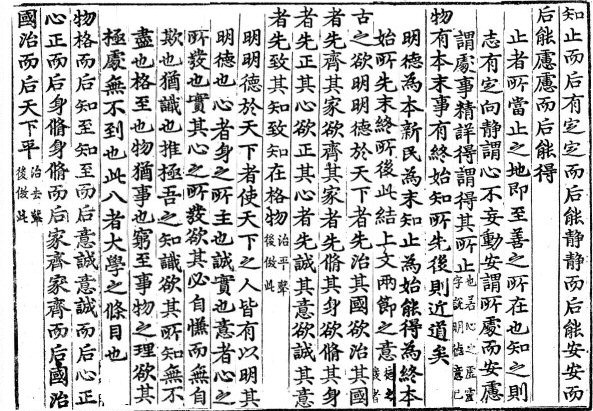 知止而后有定定而后能静静而后能安安而
后能慮慮而后能得
止者所當止之地即至善之所在也知之則
志有定向静謂心不妄動安謂所處而安慮
謂處事精詳得謂得其所止
物有本末事有終始知所先後則近道矣
明德為本新民為末知止為始能得為終本
始所先末終所後此結上文兩節之意
古之欲明明德於天下者先治其國欲治其國
者先齊其家欲齊其家者先脩其身欲脩其身
者先正其心欲正其心者先誠其意欲誠其意
者先致其知致知在格物治平聲後倣此
明明德於天下者使天下之人皆有以明其
明德也心者身之所主也誠實也意者心之
所發也實其心之所發欲其必自慊而無自
欺也猶識也推極吾之知識欲其所知無不
盡也格至也物猶事也窮至事物之理欲其
極處無不到也此八者大學之條目也
物格而后知至知至而后意誠意誠而后心正
心正而后身脩身脩而后家齊家齊而后國治
國治而后天下平治去聲後倣此